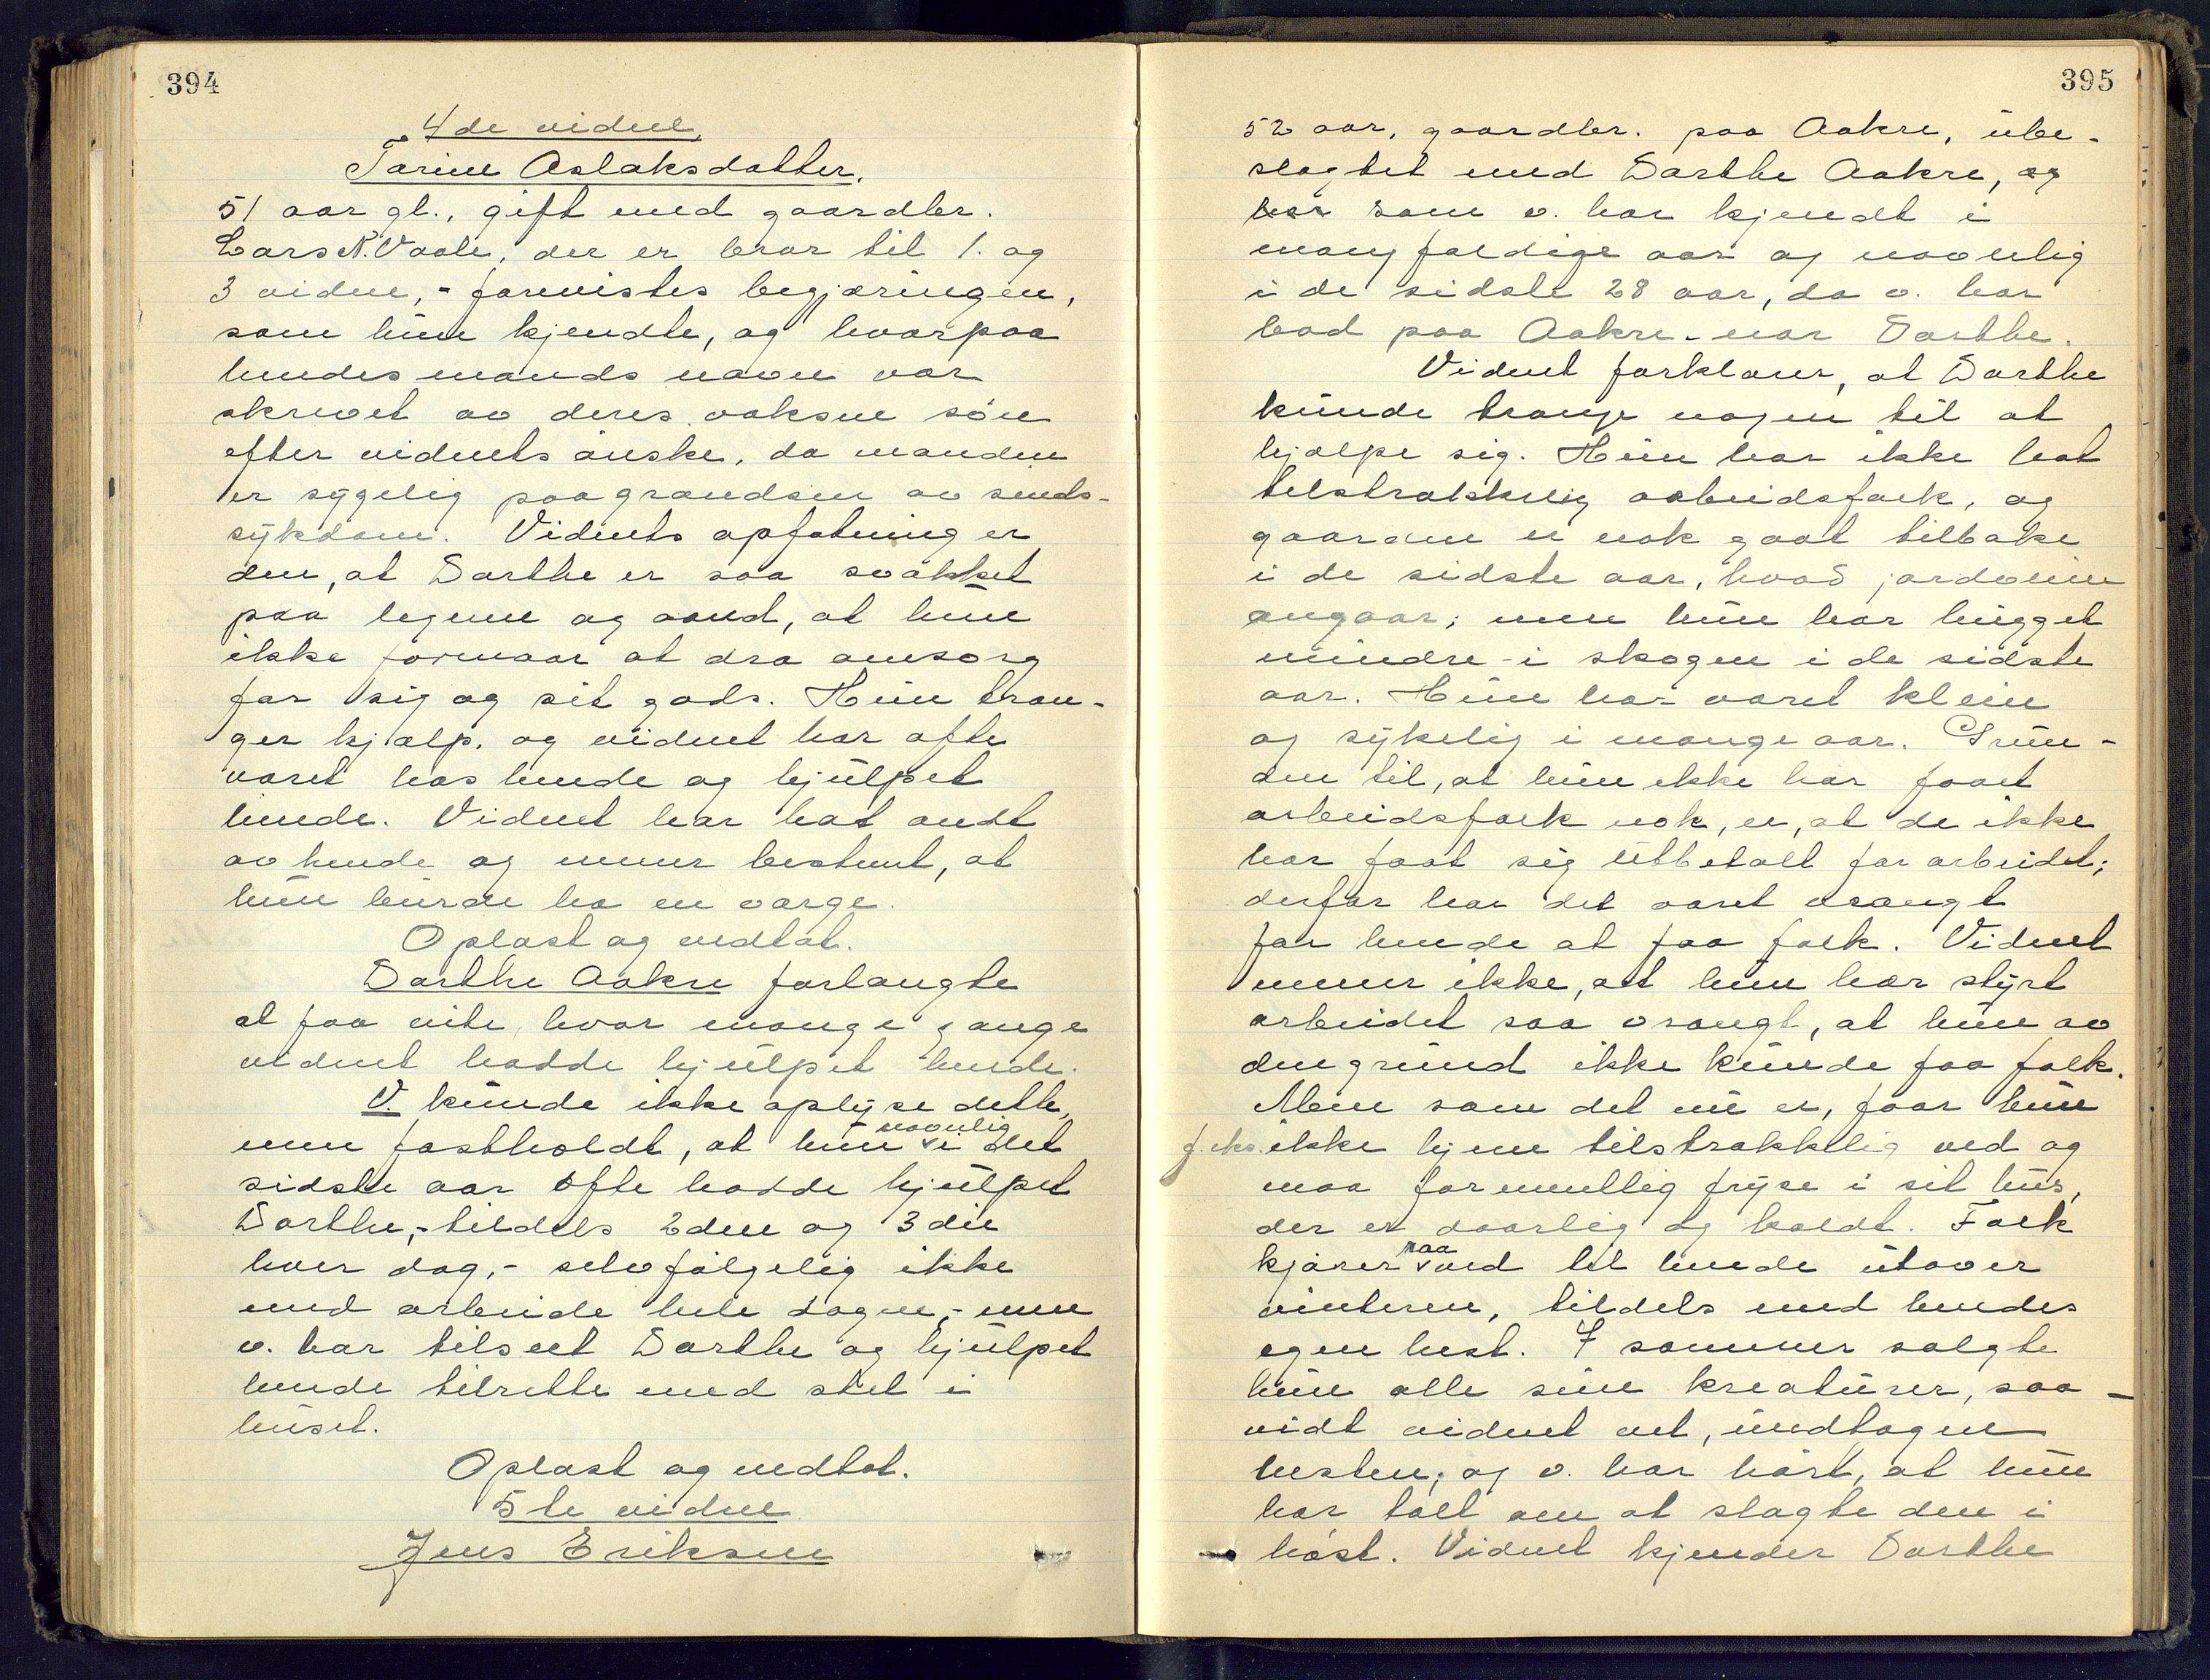 394
4de vidne,
Tarine Aslaksdatter.
51 aar gl., gift med gaardbr.
Lars N. Vaale, der er bror til 1. og
3 vidne, - forevistes begjæringen,
som hun kjendte, og hvorpaa
hendes mands navn var
skrevet av deres voksne søn
efter vidnets ønske, da manden
er sygelig paa grændsen av sinds-
sykdom. Vidnets opfatning er
den, at Darthe er saa svækket
paa legeme og aand, at hun
ikke formaar at dra omsorg
for sig og sit gods. Hun træn-
ger hjælp, og vidnet har ofte
været hos hende og hjulpet
hende. Vidnet har hat ondt
av hende og mener bestemt, at
hun burde ha en værge.
Oplæst og vedtat.
Darthe Aakre forlangte
at faa vite, hvor mange gange
vidnet hadde hjulpet hende.
V. kunde ikke oplyse dette,
men fastholdt, at hun navnlig i det
sidste aar ofte hadde hjulpet
Darthe, - tildels 2den og 3die
hver dag, - selvfølgelig ikke
med arbeide hele dagen, - men
v. har tilseet Darthe og hjulpet
hende tilrette med stel i
huset.
Oplæst og vedtat.
5te vidne
Jens Eriksen
395
52 aar, gaardbr. paa Aakre, ube-
slægtet med Darthe Aakre, og
som v. har kjendt i
mangfoldige aar og navnlig
i de sidste 28 aar, da v. har
bod paa Aakre - nær Darthe.
Vidnet forklarer, at Darthe
kunde trænge nogen til at
hjælpe sig. Hun har ikke hat
tilstrækkelig arbeidsfolk, og
gaarden er nok gaat tilbake
i de sidste aar, hvad jordveien
angaar; men hun har hugget
mindre i skogen i de sidste
aar. Hun har været klein
og sykelig i mange aar. Grun-
den til, at hun ikke har faaet
arbeidsfolk nok, er, at de ikke
har faat sig utbetalt for arbeidet;
derfor har det været vrangt
for hende at faa folk. Vidnet
mener ikke, at hun har styrt
arbeidet saa vrangt, at hun av
den grund ikke kunde faa folk.
Men som det nu er, faar hun
f. eks. ikke hjem tilstrækkelig ved og
maa formentlig fryse i sit hus,
der er daarlig og koldt. Folk
kjører raa ved til hende utover
vinteren, tildels med hendes
egen hest. I sommer solgte
hun alle sine kreaturer, saa-
vidt vidnet vet, undtagen
hesten; og v. har hørt, at hun
har talt om at slagte den i
høst. Vidnet kjender Darthe